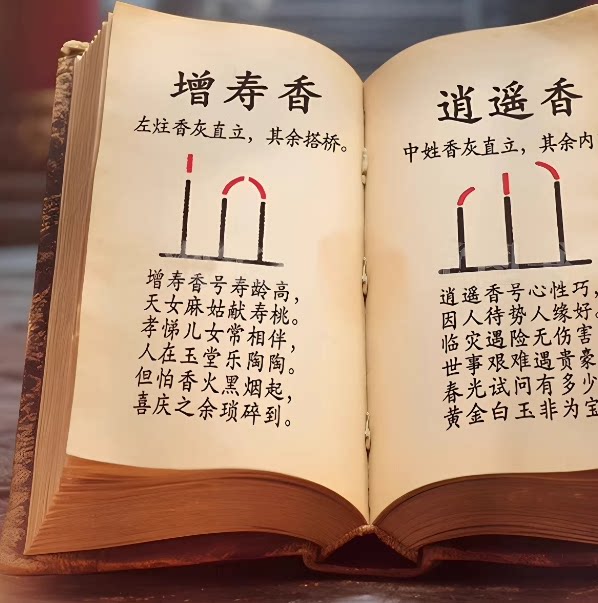 增寿香
左炷香灰直立，其余搭桥。
增寿香号寿龄高，
天女麻姑献寿桃。
孝悌儿女常相伴，
人在玉堂乐陶陶。
但怕香火黑烟起，
喜庆之余琐碎到。
逍遥香
中姓香灰直立，其余内
逍遥香号心性巧，
因人待势人缘好。
临灾遇险无伤害
世事艰难遇贵豪
春光试问有多少
黄金白玉非为宝